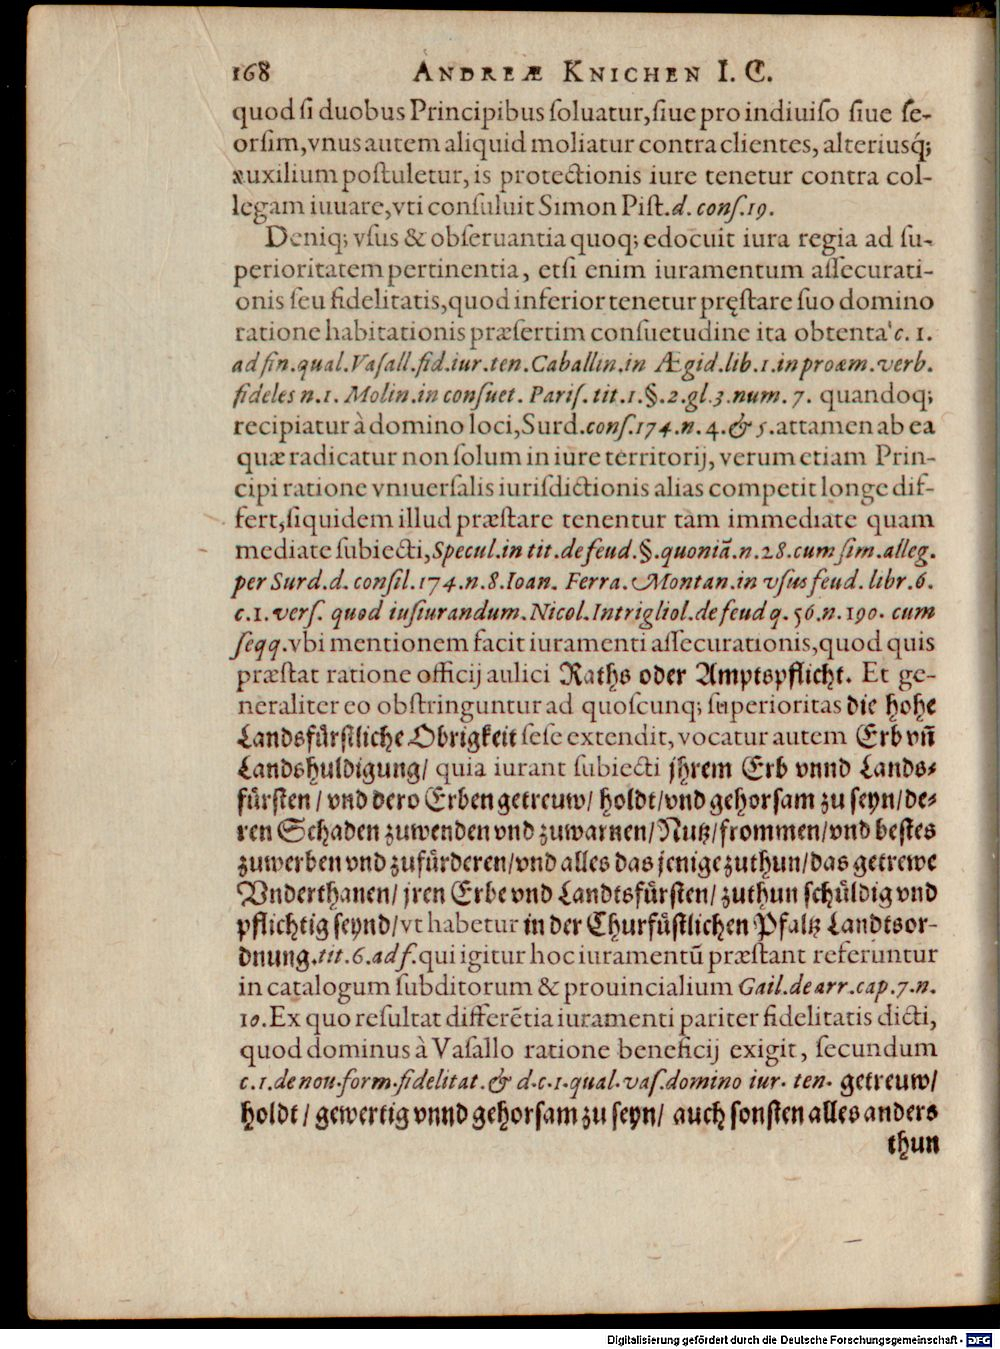 168 ANDREÆ KNICHEN I. C.
quod ſi duobus Principibus ſoluatur, ſiue pro indiuiſo ſiue ſe-
orſim, vnus autem aliquid moliatur contra clientes, alteriusq́;
auxilium poſtuletur, is protectionis iure tenetur contra col-
legam iuuare, vti conſuluit Simon Piſt. d. conſ. 19.
Deniq; vſus & obſeruantia quoq; edocuit iura regia ad ſu-
perioritatem pertinentia, etſi enim iuramentum aſſecurati-
onis ſeu fidelitatis, quod inferior tenetur pręſtare ſuo domino
ratione habitationis præſertim conſuetudine ita obtenta' c. 1.
ad fin. qual. Vaſall. fid. iur. ten. Caballin. in Ægid. lib. 1. in proæm. verb.
fideles n. 1. Molin. in conſuet. Pariſ. tit. 1. §. 2. gl. 3. num. 7. quandoq;
recipiatur à domino loci, Surd. conſ. 174. n. 4. & 5. attamen ab ea
quæ radicatur non ſolum in iure territorij, verum etiam Prin-
cipi ratione vniuerſalis iurisdictionis alias competit longe dif-
fert, ſiquidem illud præſtare tenentur tam immediate quam
mediate ſubiecti, Specul. in tit. de feud. §. quoniã. n. 28. cum ſim. alleg.
per Surd. d. conſil. 174. n. 8. Ioan. Ferra. Montan. in vſus feud. libr. 6.
c. 1. verſ. quod iuſiurandum. Nicol. Intrigliol. de feud q. 56. n. 190. cum
ſeqq. vbi mentionem facit iuramenti aſſecurationis, quod quis
præſtat ratione officij aulici Raths oder Amptspflicht. Et ge-
neraliter eo obſtringuntur ad quoſcunq; ſuperioritas die hohe
Landsfürſtliche Obrigkeit ſeſe extendit, vocatur autem Erb vñ
Landshuldigung/ quia iurant ſubiecti jhrem Erb vnnd Lands-
fürſten / vnd dero Erben getreuw/ holdt/ vnd gehorſam zu ſeyn/ de-
ren Schaden zuwenden vnd zuwarnen/ Nutz/ frommen/ vnd beſtes
zuwerben vnd zufürderen/ vnd alles das jenige zuthun/ das getrewe
Vnderthanen/ jren Erbe vnd Landtsfürſten/ zuthun ſchüldig vnd
pflichtig ſeynd/ vt habetur in der Churfüſtlichen Pfaltz Landtsor-
dnung. tit. 6. ad f. qui igitur hoc iuramentũ præſtant referuntur
in catalogum ſubditorum & prouincialium Gail. de arr. cap. 7. n.
10. Ex quo reſultat differẽtia iuramenti pariter fidelitatis dicti,
quod dominus à Vaſallo ratione beneficij exigit, ſecundum
c. 1. de nou. form. fidelitat. & d. c. 1. qual. vaſ. domino iur. ten. getreuw/
holdt / gewertig vnnd gehorſam zu ſeyn/ auch ſonſten alles anders
thun
Digitalisierung gefördert durch die Deutsche Forschungsgemeinschaft - DFG